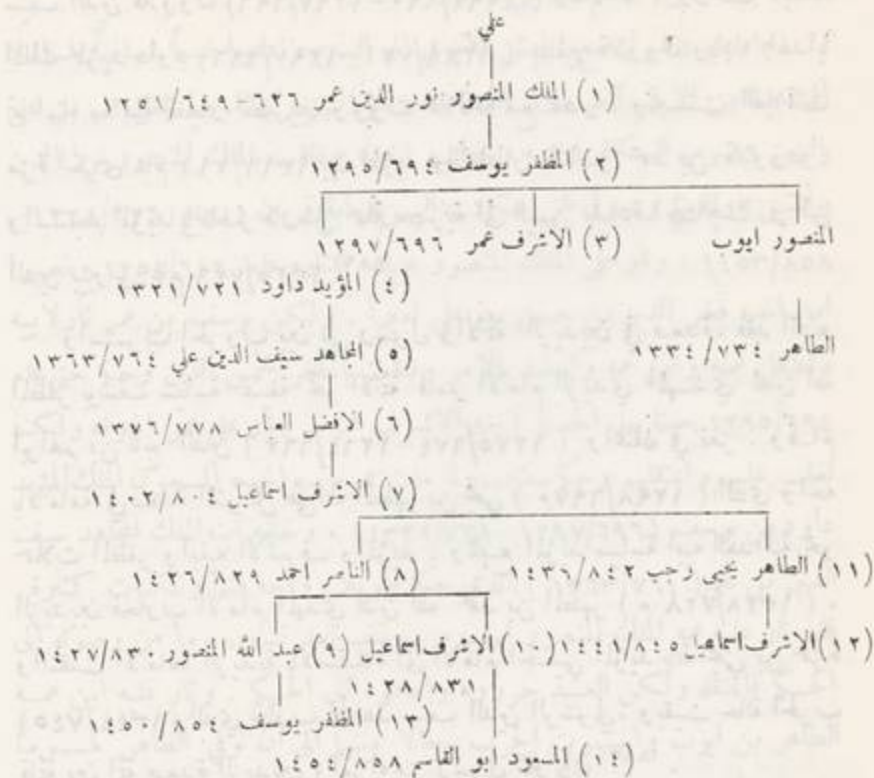 علي
(١) الملك المنصور نور الدين عمر ٦٢٦-١٢٥١/٦٤٩
(٢) المظفر يوسف ١٢٩٥/٦٩٤
المنصور ايوب (٣) الاشرف عمر ١٢٩٧/٦٩٦
(٤) المؤيد داود ١٣٢١/٧٢١
الطاهر ١٣٣٤/٧٣٤ (٥) المجاهد سيف الدين علي ١٣٦٣/٧٦٤
(٦) الافضل العباس ١٣٧٦/٧٧٨
(٧) الاشرف اسماعيل ١٤٠٢/٨٠٤
(١١) الطاهر يحيى رجب ١٤٣٦/٨٤٢ (٨) الناصر احمد ١٤٢٦/٨٢٩
(١٢) الاشرف اسماعيل ١٤٤١/٨٤٥ (١٠) الاشرف اسماعيل (٩) عبد الله المنصور ١٤٢٧/٨٣٠
١٤٢٨/٨٣١
(١٣) المظفر يوسف ١٤٥٠/٨٥٤
(١٤) المسعود ابو القاسم ١٤٥٤/٨٥٨